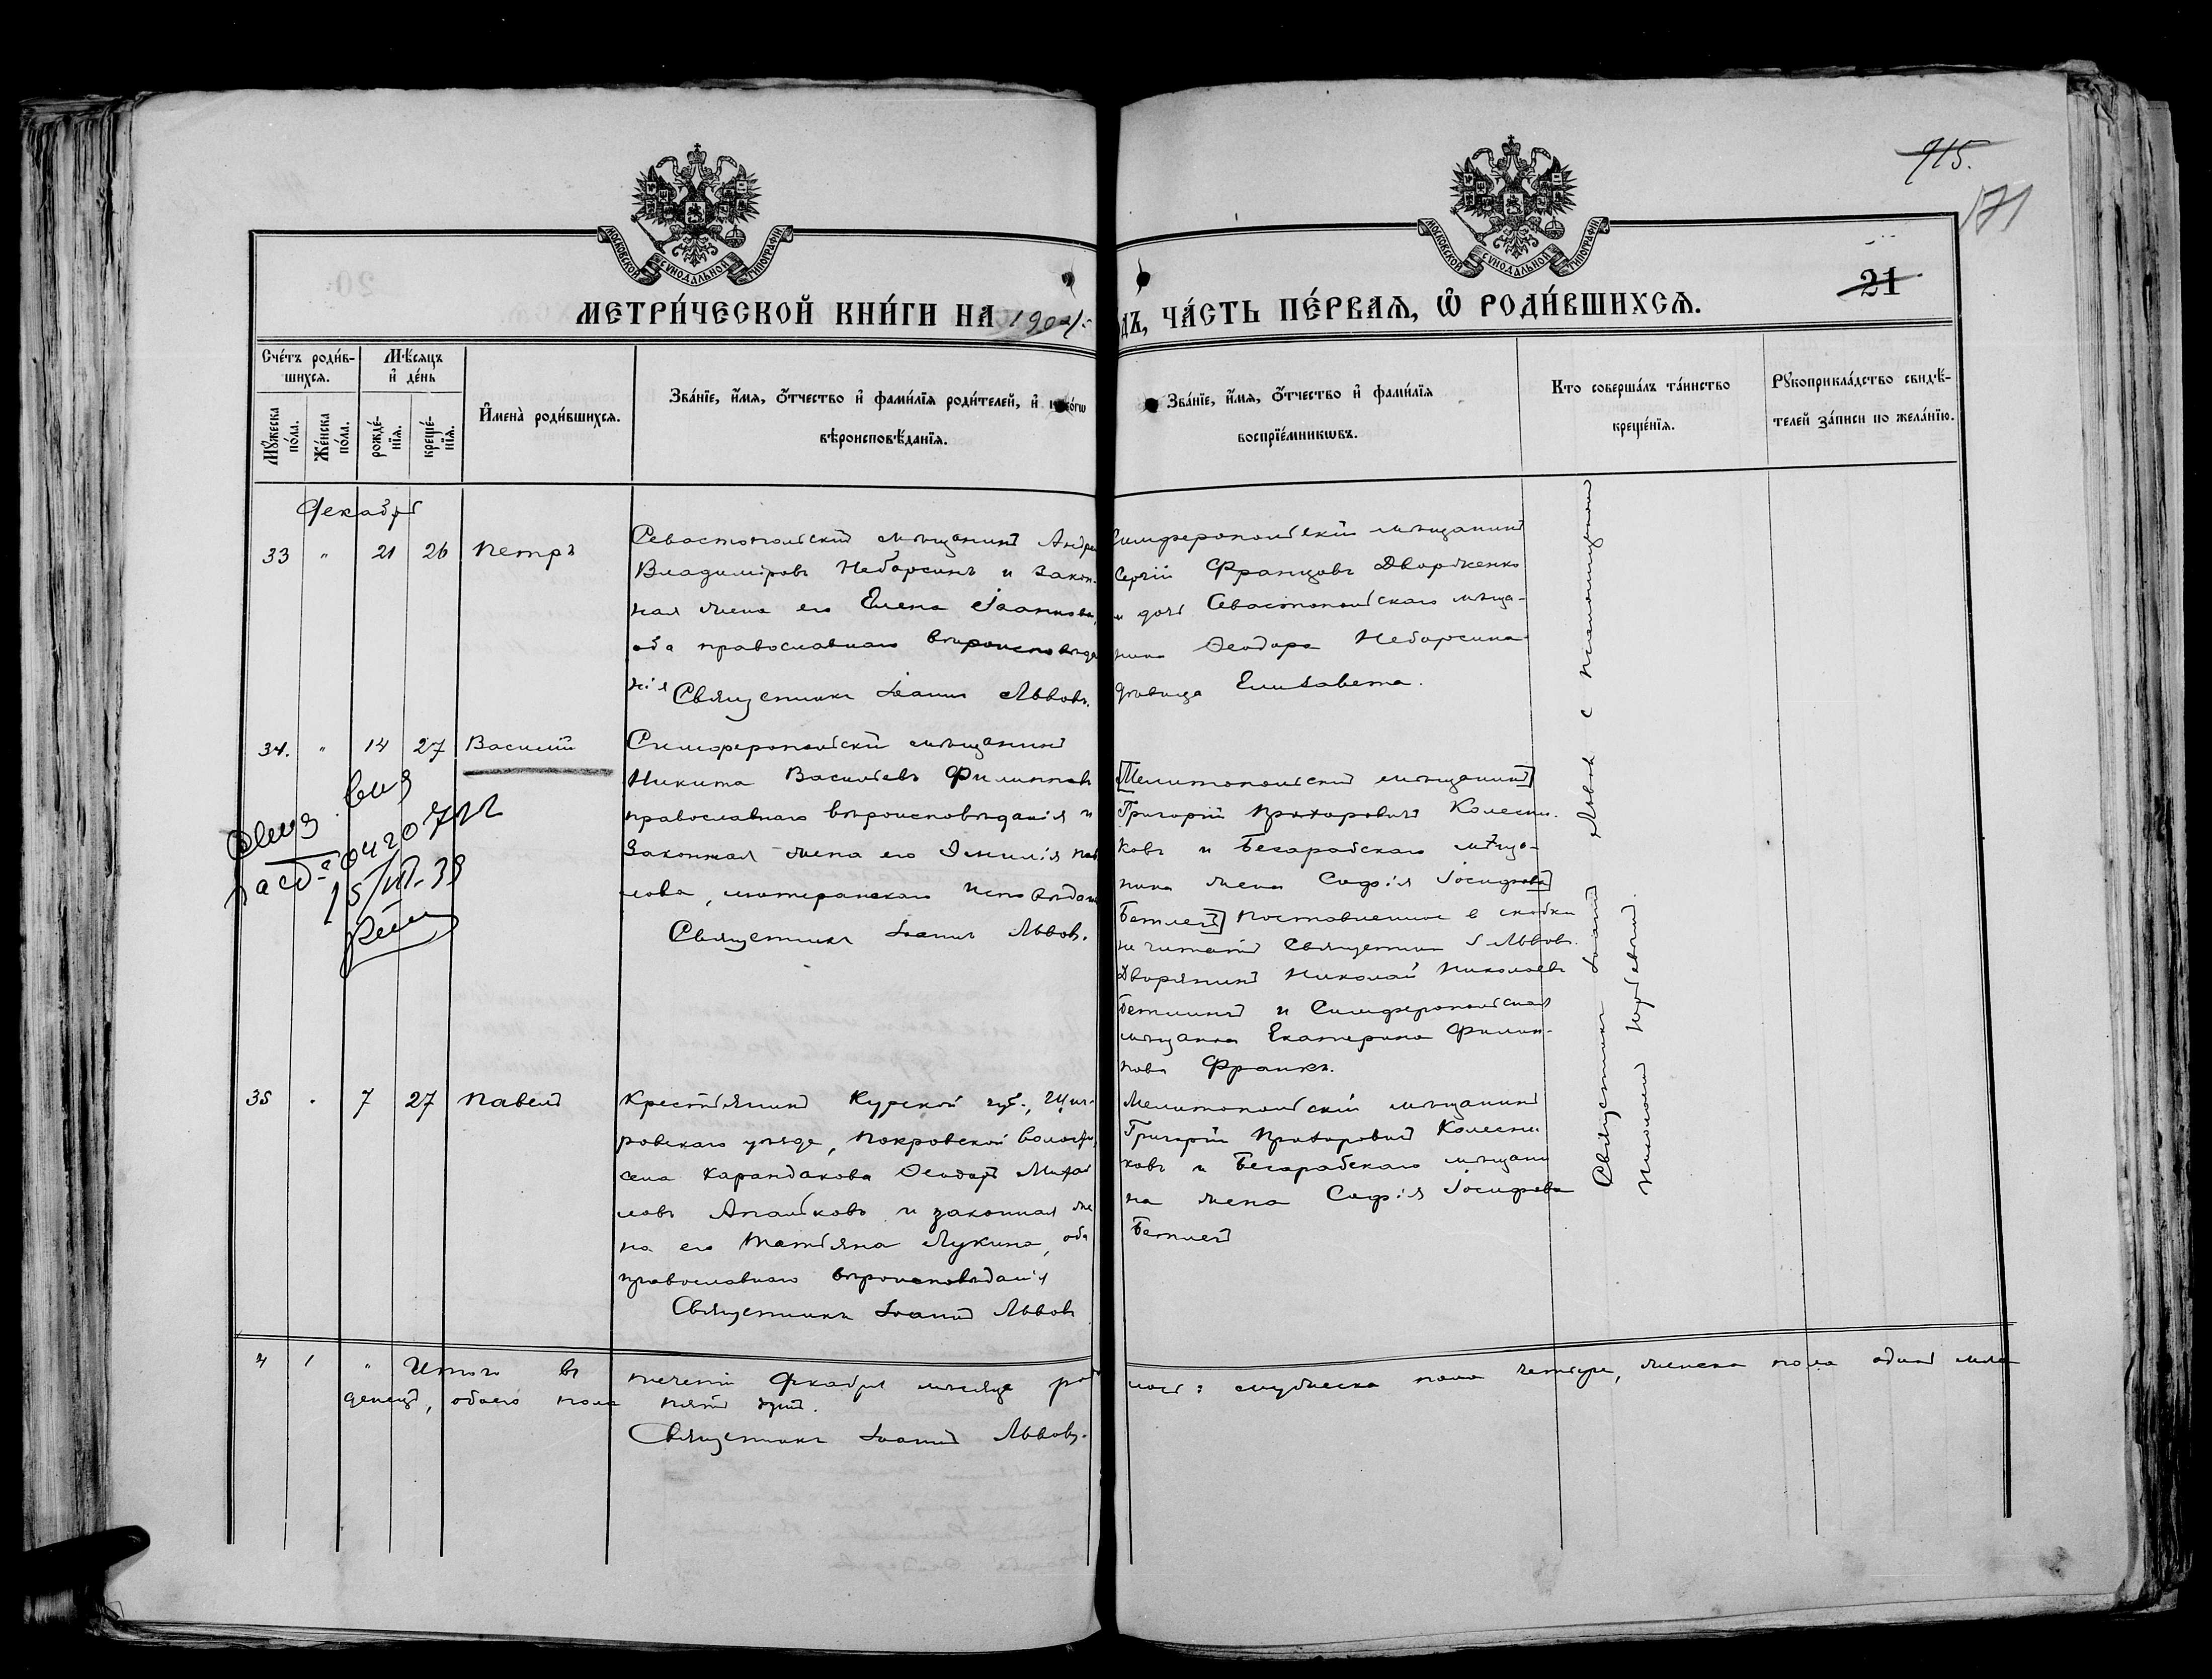 915.
171
МОСКОВСКОЙ СѴНОДАЛЬНОЙ ТИПОГРАФІИ
МОСКОВСКОЙ СѴНОДАЛЬНОЙ ТИПОГРАФІИ
21
МЕТРИ́ЧЕСКОЙ КНИ́ГИ НА 1904
ДЪ, ЧА́СТЬ ПЕ́РВАЯ, Ѡ РОДИ́ВШИХСЯ.
Сче́тъ роди́в-
шихся.
Мꙋ́жеска по́ла.
Же́нска по́ла.
Мѣ́сяцъ
и҆ де́нь
рожде́-нїя.
креще́-нїя.
И҆мена̀ роди́вшихся.
Зва́нїе, и҆́мя, ѻ҆́тчество и҆ фами́лїя роди́телей, и҆
вѣроисповѣ́данїя.
Зва́нїе, и҆́мя, ѻ҆́тчество и҆ фами́лїя
воспрїе́мникѡвъ.
Кто соверша́лъ та́инство
креще́нїя.
Рꙋкоприкла́дство свидѣ́-
телей за́писи по жела́нїю.
Декабрь
33 " 21 26 Петръ
Севастопольскій мѣщанинъ Андрей
Владиміровъ Неборсинъ и закон-
ная жена его Елена Іоаннова,
оба православнаго вѣроисповѣда
нія Священникъ Іоаннъ Львовъ.
Симферопольскій мѣщанинъ
Сергій Францовъ Дворженко
и дочь Севастопольскаго мѣща-
нина Ѳеодора Неборсина
дѣвица Елисавета.
34. " 14 27 Василій
Симферопольскій мѣщанинъ
Никита Васильевъ Филипповъ
православнаго вѣроисповѣданія и
законная жена его Эмилія Пав
лова, лютеранскаго исповѣдан
Священникъ Іоаннъ Львовъ.
15/VII-39
[Мелитопольскій мѣщанинъ]
Григорій Прохоровичъ Колесни-
ковъ и Бесарабскаго мѣща-
нина жена Софія Іосифова
Бетлей] Поставленное в скобки
не читать Священник І Львовъ.
Дворянинъ Николай Николаевъ
Бетлингъ и Симферопольская
мѣщанка Екатерина Филип-
пова Франкъ.
35 " 7 27 Павелъ
Крестьянинъ Курской губ., Щиг-
ровскаго уѣзда, Покровской волости,
села Карандакова Ѳеодоръ Михай
ловъ Апальковъ и законная же
на его Татьяна Лукина, оба
православнаго вѣроисповѣданія
Священникъ Іоаннъ Львовъ
Мелитопольскій мѣщанинъ
Григорій Прохоровичъ Колесни
ковъ и Бесарабскаго мѣщани
на жена Софія Іосифова
Бетлей
Священникъ Іоаннъ Львовъ с псаломщикомъ
Николаемъ
4 1 " Итого въ теченіи Декабря мѣсяца роди
лось: мужеска пола четыре, женска пола один мла
денецъ, обоего пола пять душъ.
Священникъ Іоаннъ Львовъ.